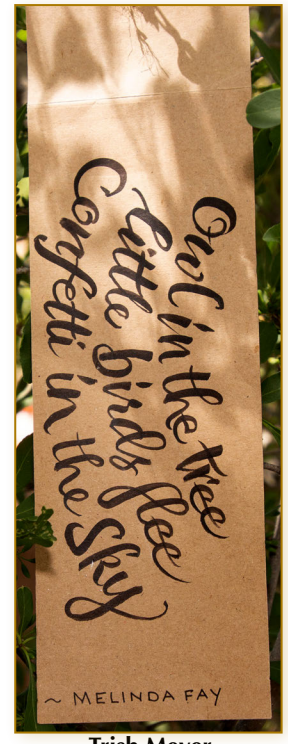 Owl in the tree
Little birds flee
Confetti in the Sky
~ MELINDA FAY
Trish Meyer